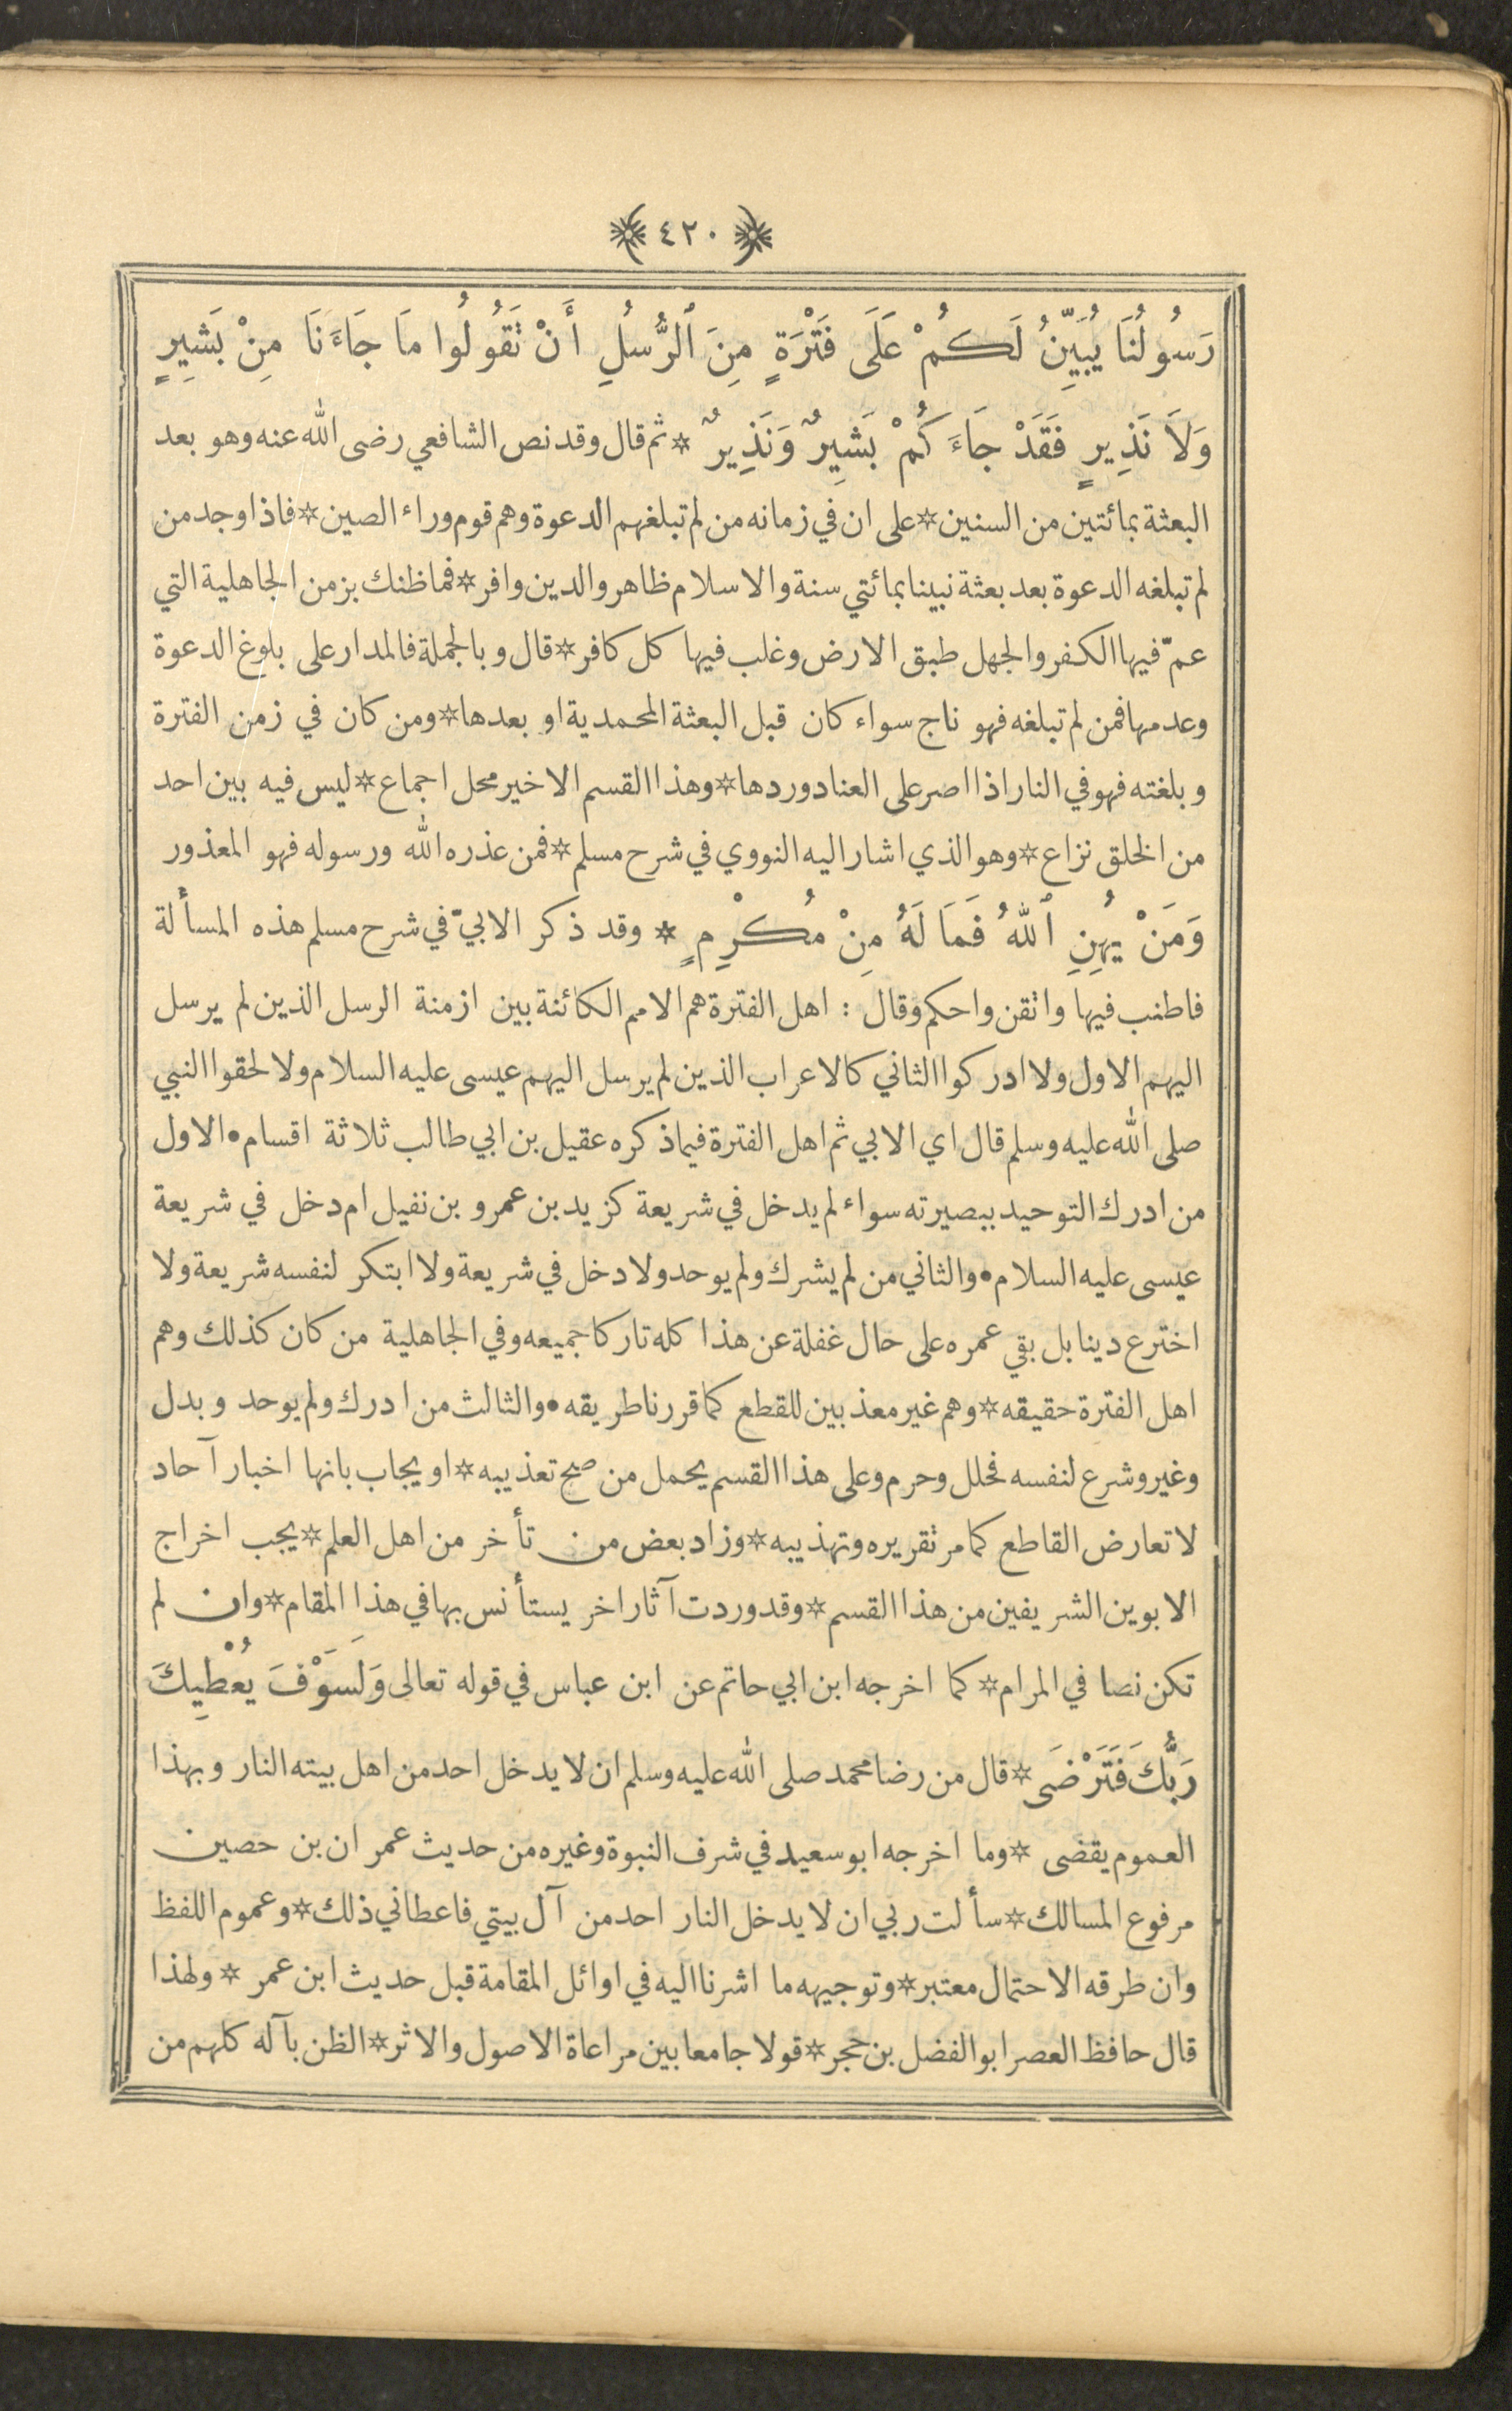 ٤٢٠
رَسُولُنَا يُبَيِّنُ لَكُمْ عَلَى فَتْرَةٍ مِنَ ٱلرُّسُلِ أَنْ تَقُولُوا مَا جَاءَنَا مِنْ بَشِيرٍ
وَلاَ نَذِيرٍ فَقَدْ جَاءَكُمْ بَشِيرٌ وَنَذِيرٌ * ثم قال وقد نص الشافعي رضى الله عنه وهو بعد
البعثة بمائتين من السنين * على ان في زمانه من لم تبلغهم الدعوة وهم قوم وراء الصين * فاذا وجد من
لم تبلغه الدعوة بعد بعثة نبينا بمائتي سنة والاسلام ظاهر والدين وافر * فما ظنك بزمن الجاهلية التي
عمّ فيها الكفر والجهل طبق الارض وغلب فيها كل كافر * قال وبالجملة فالمدار على بلوغ الدعوة
وعدمها فمن لم تبلغه فهو ناج سواء كان قبل البعثة المحمدية او بعدها * ومن كان في زمن الفترة
وبلغته فهو في النار اذا اصر على العناد وردها * وهذا القسم الاخير محل اجماع * ليس فيه بين احد
من الخلق نزاع * وهو الذي اشار اليه النووي في شرح مسلم * فمن عذره الله ورسوله فهو المعذور
وَمَنْ يُهِنِ ٱللهُ فَمَا لَهُ مِنْ مُكْرِمٍ * وقد ذكر الابيّ في شرح مسلم هذه المسألة
فاطنب فيها واتقن واحكم وقال : اهل الفترة هم الامم الكائنة بين ازمنة الرسل الذين لم يرسل
اليهم الاول ولا ادركوا الثاني كالاعراب الذين لم يرسل اليهم عيسى عليه السلام ولا لحقوا النبي
صلى الله عليه وسلم قال اي الابي ثم اهل الفترة فيما ذكره عقيل بن ابي طالب ثلاثة اقسام • الاول
من ادرك التوحيد ببصيرته سواء لم يدخل في شريعة كزيد بن عمرو بن نفيل ام دخل في شريعة
عيسى عليه السلام • والثاني من لم يشرك ولم يوحد ولا دخل في شريعة ولا ابتكر لنفسه شريعة ولا
اخترع دينا بل بقي عمره على حال غفلة عن هذا كله تاركا جميعه وفي الجاهلية من كان كذلك وهم
اهل الفترة حقيقه * وهم غير معذبين للقطع كما قررنا طريقه • والثالث من ادرك ولم يوحد وبدل
وغير وشرع لنفسه فحلل وحرم وعلى هذا القسم يحمل من صح تعذيبه * او يجاب بانها اخبار آحاد
لا تعارض القاطع كما مر تقريره وتهذيبه * وزاد بعض من تأخر من اهل العلم * يجب اخراج
الابوين الشريفين من هذا القسم * وقد وردت آثار اخر يستأنس بها في هذا المقام * وان لم
تكن نصا في المرام * كما اخرجه ابن ابي حاتم عن ابن عباس في قوله تعالى وَلَسَوْفَ يُعْطِيكَ
رَبُّكَ فَتَرْضَى * قال من رضا محمد صلى الله عليه وسلم ان لا يدخل احد من اهل بيته النار وبهذا
العموم يقضى * وما اخرجه ابو سعيد في شرف النبوة وغيره من حديث عمران بن حصين
مرفوع المسالك * سألت ربي ان لا يدخل النار احد من آل بيتي فاعطاني ذلك * وعموم اللفظ
وان طرقه الاحتمال معتبر * وتوجيهه ما اشرنا اليه في اوائل المقامة قبل حديث ابن عمر * ولهذا
قال حافظ العصر ابو الفضل بن حجر * قولا جامعا بين مراعاة الاصول والاثر * الظن بآله كلهم من